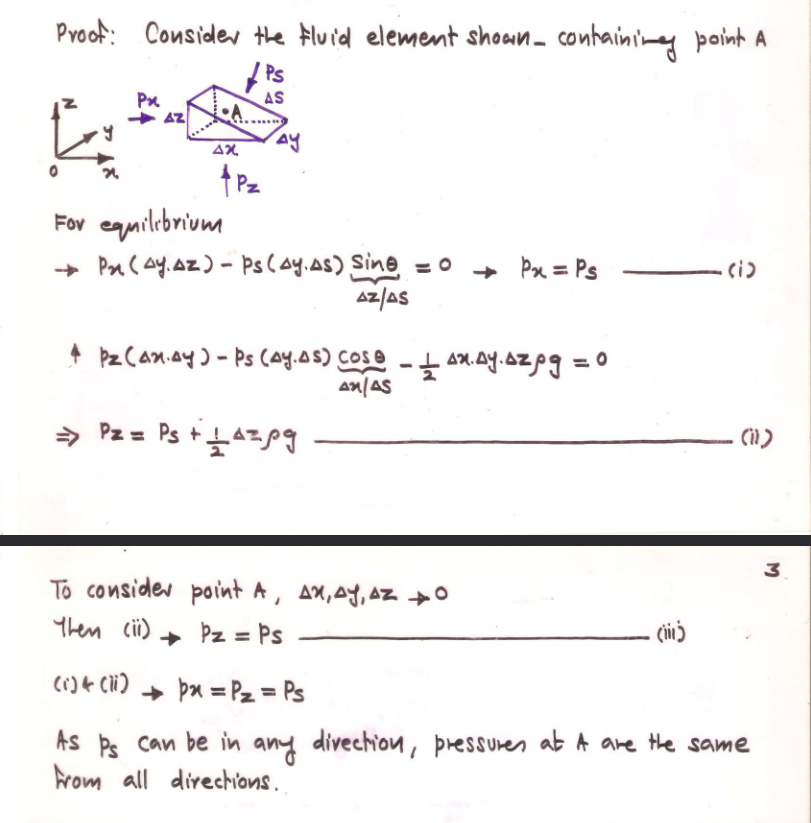 Proof: Consider the fluid element shown - containing point A
Ps
Z
Px
ΔS
ΔZ
•A
y
Δy
Δx
O
x
Pz
For equilibrium
→ Px(Δy.Δz) - Ps(Δy.Δs) Sinθ = 0 → Px = Ps ——— (i)
Δz/Δs
↑ Pz(Δx.Δy) - Ps(Δy.Δs) cosθ - 1/2 Δx.Δy.Δzρg = 0
Δx/Δs
⇒ Pz = Ps + 1/2 Δzρg ——— (ii)
3
To consider point A, Δx,Δy,Δz → 0
Then (ii) → Pz = Ps ——— (iii)
(i) & (ii) → Px = Pz = Ps
As Ps can be in any direction, pressures at A are the same
from all directions.